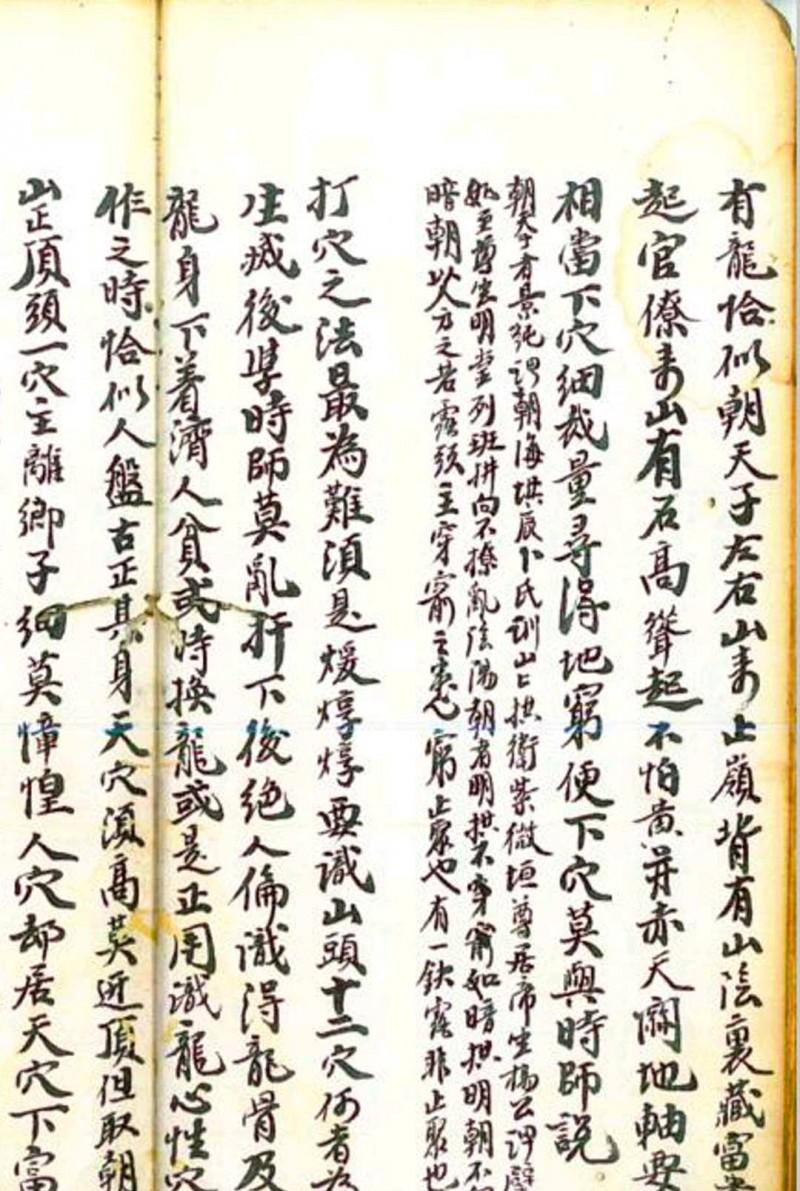 有龍恰似朝天子左右山来止嶺背有山陰裏藏富貴
起官僚来山有石高聳起不怕黄并赤天關地軸要
相當下穴細裁量尋得地窮便下穴莫與時師説
朝天子者景純謂朝海拱辰卜氏訓山山拱衛紫微垣尊居帝坐楊公謂
如至尊坐明堂列班拼向不撩亂陰陽朝者明拱不穿窮如暗拱明朝不
暗朝以人方之若露頭主穿窬之窮止聚也有一缺露非止聚也
打穴之法最為難須是煖焞焞要識山頭十二穴何者為
生滅後學時師莫亂扦下後絶人倫識得龍骨及
龍身下着濟人貧或時換龍或是正用識龍心性穴
作之時恰似人盤古正其身天穴須高莫近頂但取朝
山正頂頭一穴主離鄉子細莫慞惶人穴却居天穴下富